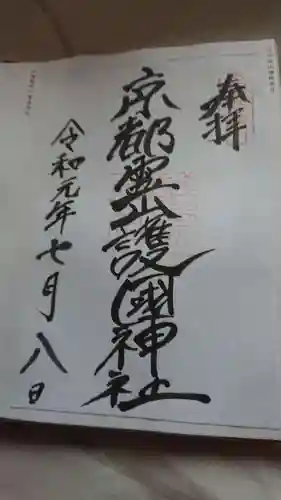 奉拝
京都霊山護國神社
令和元年七月八日